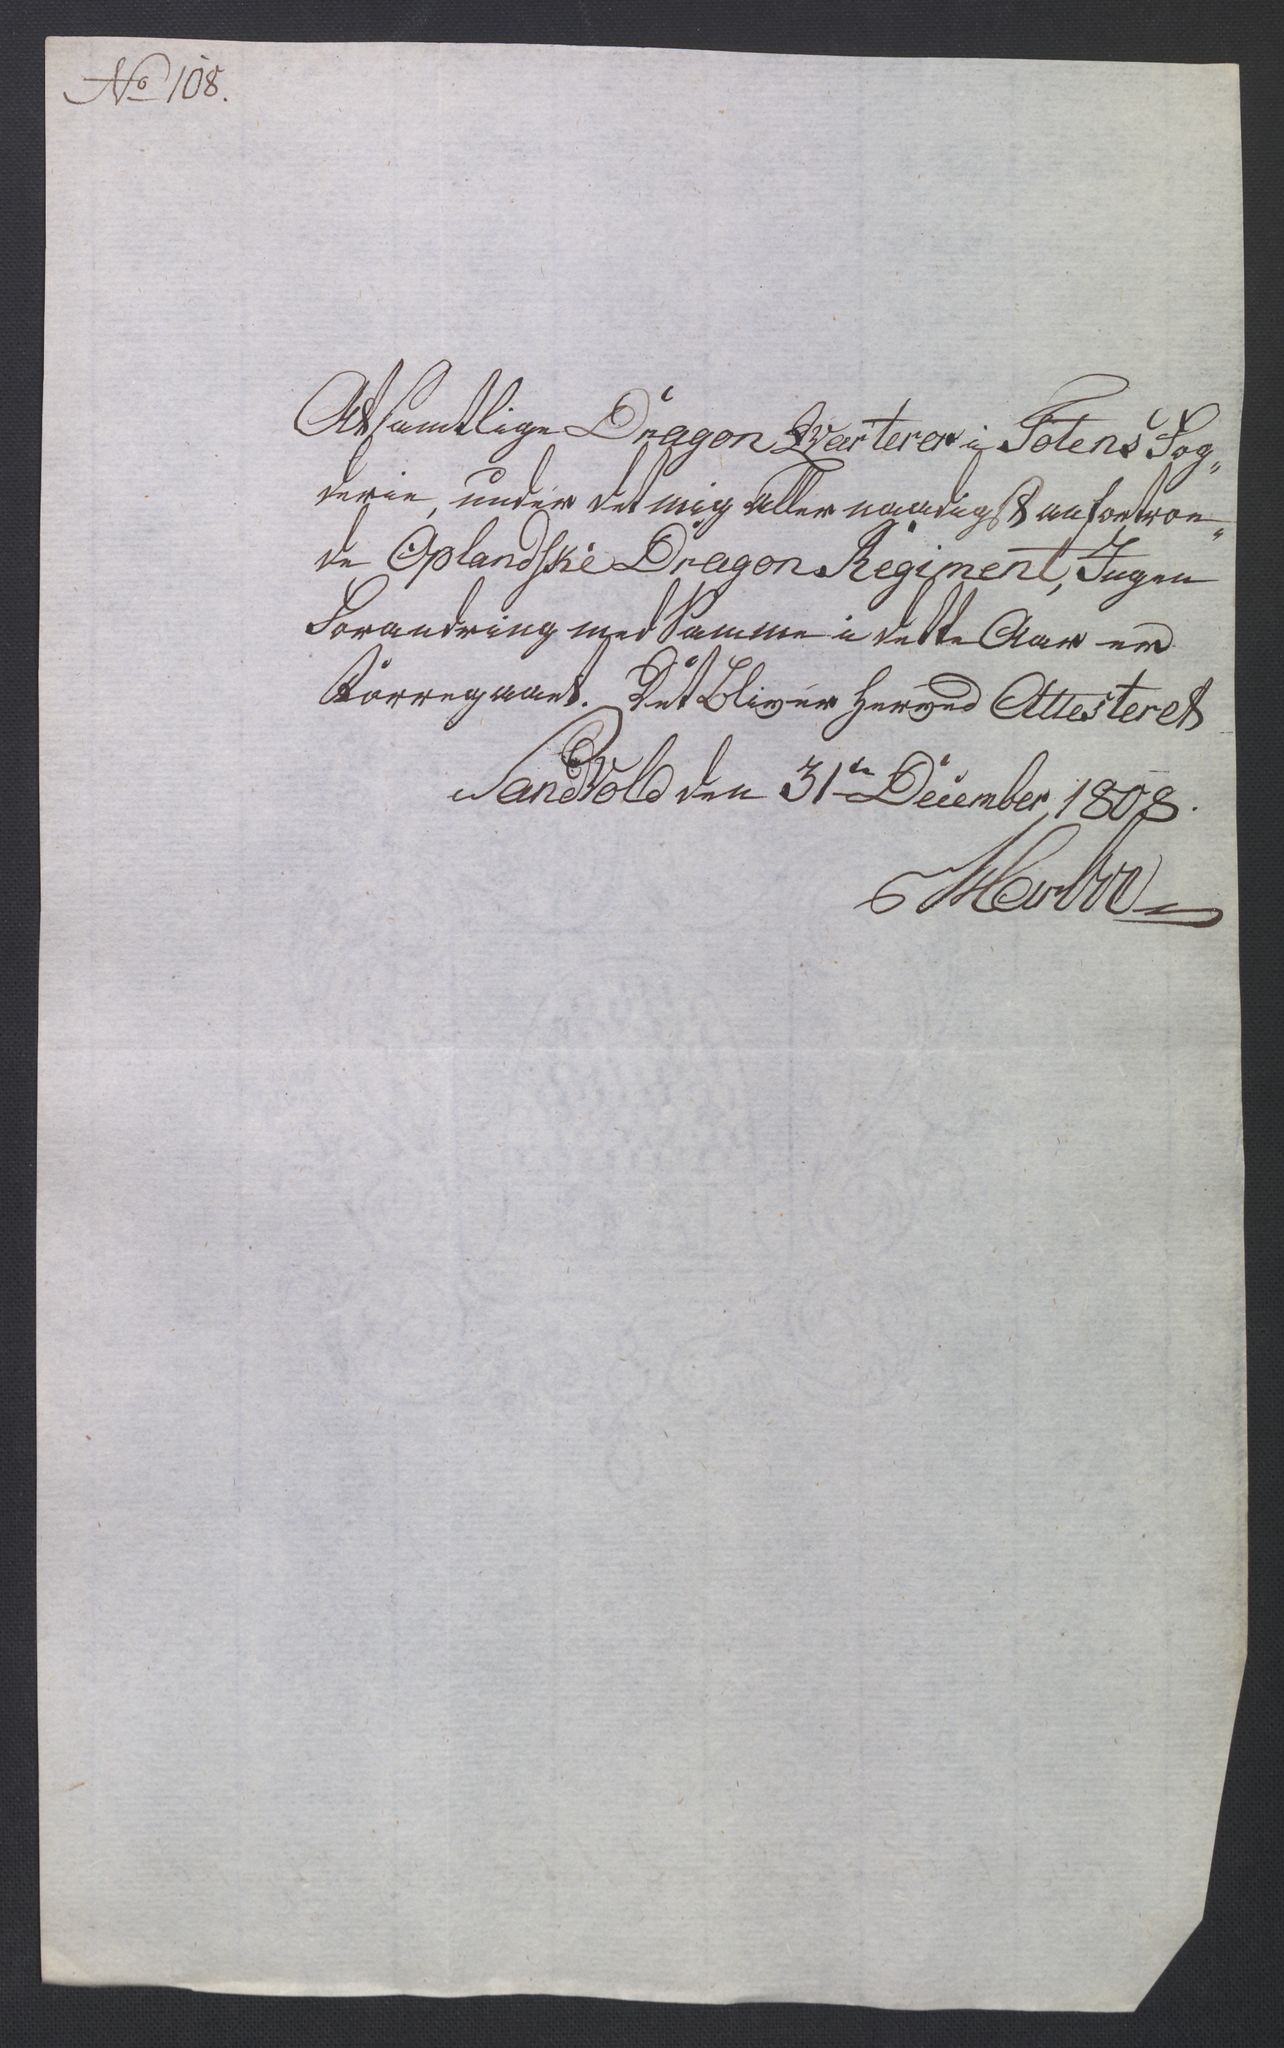 No 108.
At samtlige Dragon Qvarterer i Totens Fog„
derie, under det mig Aller naadigst anfortroe„
de Oplandske Dragon Regiment, Ingen
Forandring med Samme i dette Aar er
Det bliver herved Attesteret
Sandvold den 31te December 1808.